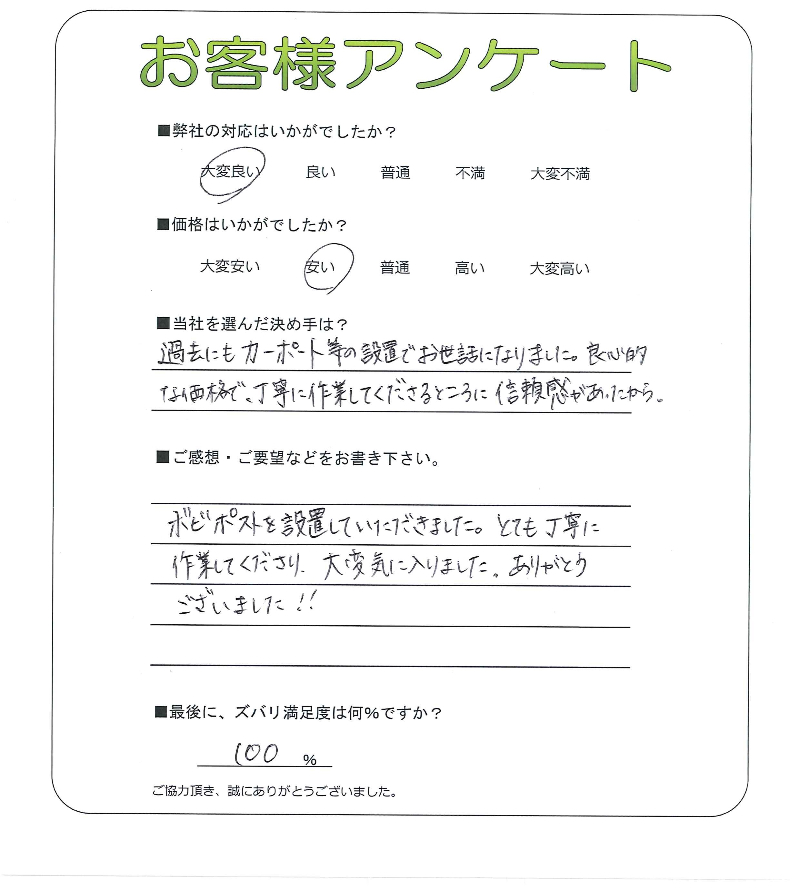 お客様アンケート
■弊社の対応はいかがでしたか？
大変良い 良い 普通 不満 大変不満
■価格はいかがでしたか？
大変安い 安い 普通 高い 大変高い
■当社を選んだ決め手は？
過去にもカーポート等の設置でお世話になりました。良心的
な価格で、丁寧に作業してくださるところに信頼感があったから。
■ご感想・ご要望などをお書き下さい。
ボビポストを設置していただきました。とても丁寧に
作業してくださり、大変気に入りました。ありがとう
ございました!!
■最後に、ズバリ満足度は何%ですか？
100 %
ご協力頂き、誠にありがとうございました。